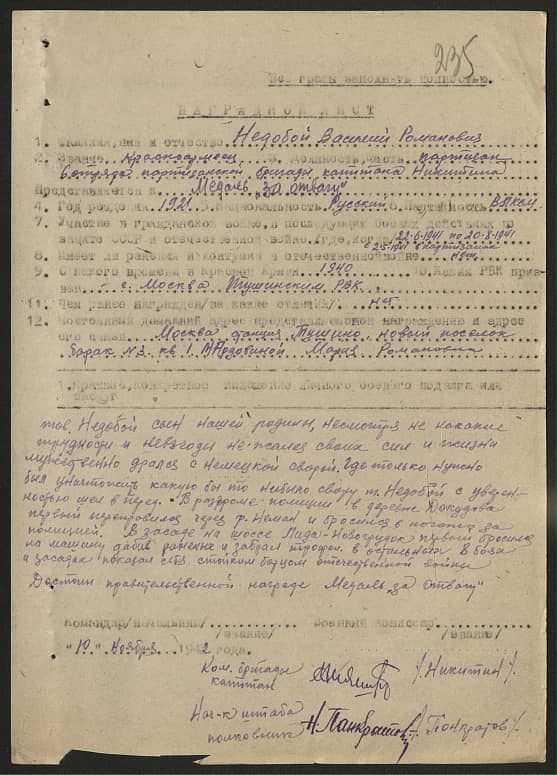 235
Все графы заполнять полностью.
НАГРАДНОЙ ЛИСТ
1. Фамилия, имя и отчество Недобой Василий Романович
2. Звание красноармеец 3. Должность, часть партизан
отряда партизанской бригады капитана Никитина
Представляется к Медаль "за отвагу"
4. Год рождения 1921 5. Национальность Русский 6. Партийность ВЛКСМ
7. Участие в гражданской войне, в последующих боевых действиях по
защите СССР и отечественной войне /где, когда/ 22.6-1941 по 20-8-1941
8. Имеет ли ранения и контузии в отечественной войне нет
9. С какого времени в Красной Армии 1940 10. Каким РВК приз-
ван г. Москва Тушинским РВК
11. Чем ранее награжден /за какие отличия/ нет
12. Постоянный домашний адрес представляемого к награждению и адрес
его семьи Москва станция Тушино, новый поселок
барак №3. кв 1. Мария Романовна
1. Краткое, конкретное изложение личного боевого подвига или
заслуг
тов. Недобой сын нашей родины, несмотря не накакие
трудности и невзгоды не жалея своих сил и жизни
мужественно дрался с немецкой сворой. Где только нужно
был уничтожить какую бы то нибыло свору т. Недобой с уверен-
ностью шел в перед. В разгроме полиции в деревне Докудова
первый переправился через р. Неман и бросился в погоню за
полицией. В засаде на шоссе Лида-Новогрудок первый бросился
на машину добив раненых и забрал трофеи. в остальных 8 боях
и засадах показал себя стойким борцом отечественной войны
Достоин правительственной награде Медаль "за отвагу"
Командир/начальник/ Военный комиссар
/звание/ /звание/
"10" Ноября 1942 года.
Ком. бригады
капитан /Никитин/
Нач-к штаба
полковник Н. Панкратов /Панкратов/